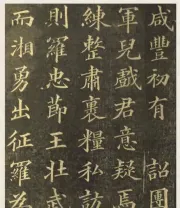 咸豐初有 詔團
軍兒戲君意疑焉
練整肅裹糧私訪
則羅忠節王壯武
而湘勇出征羅在